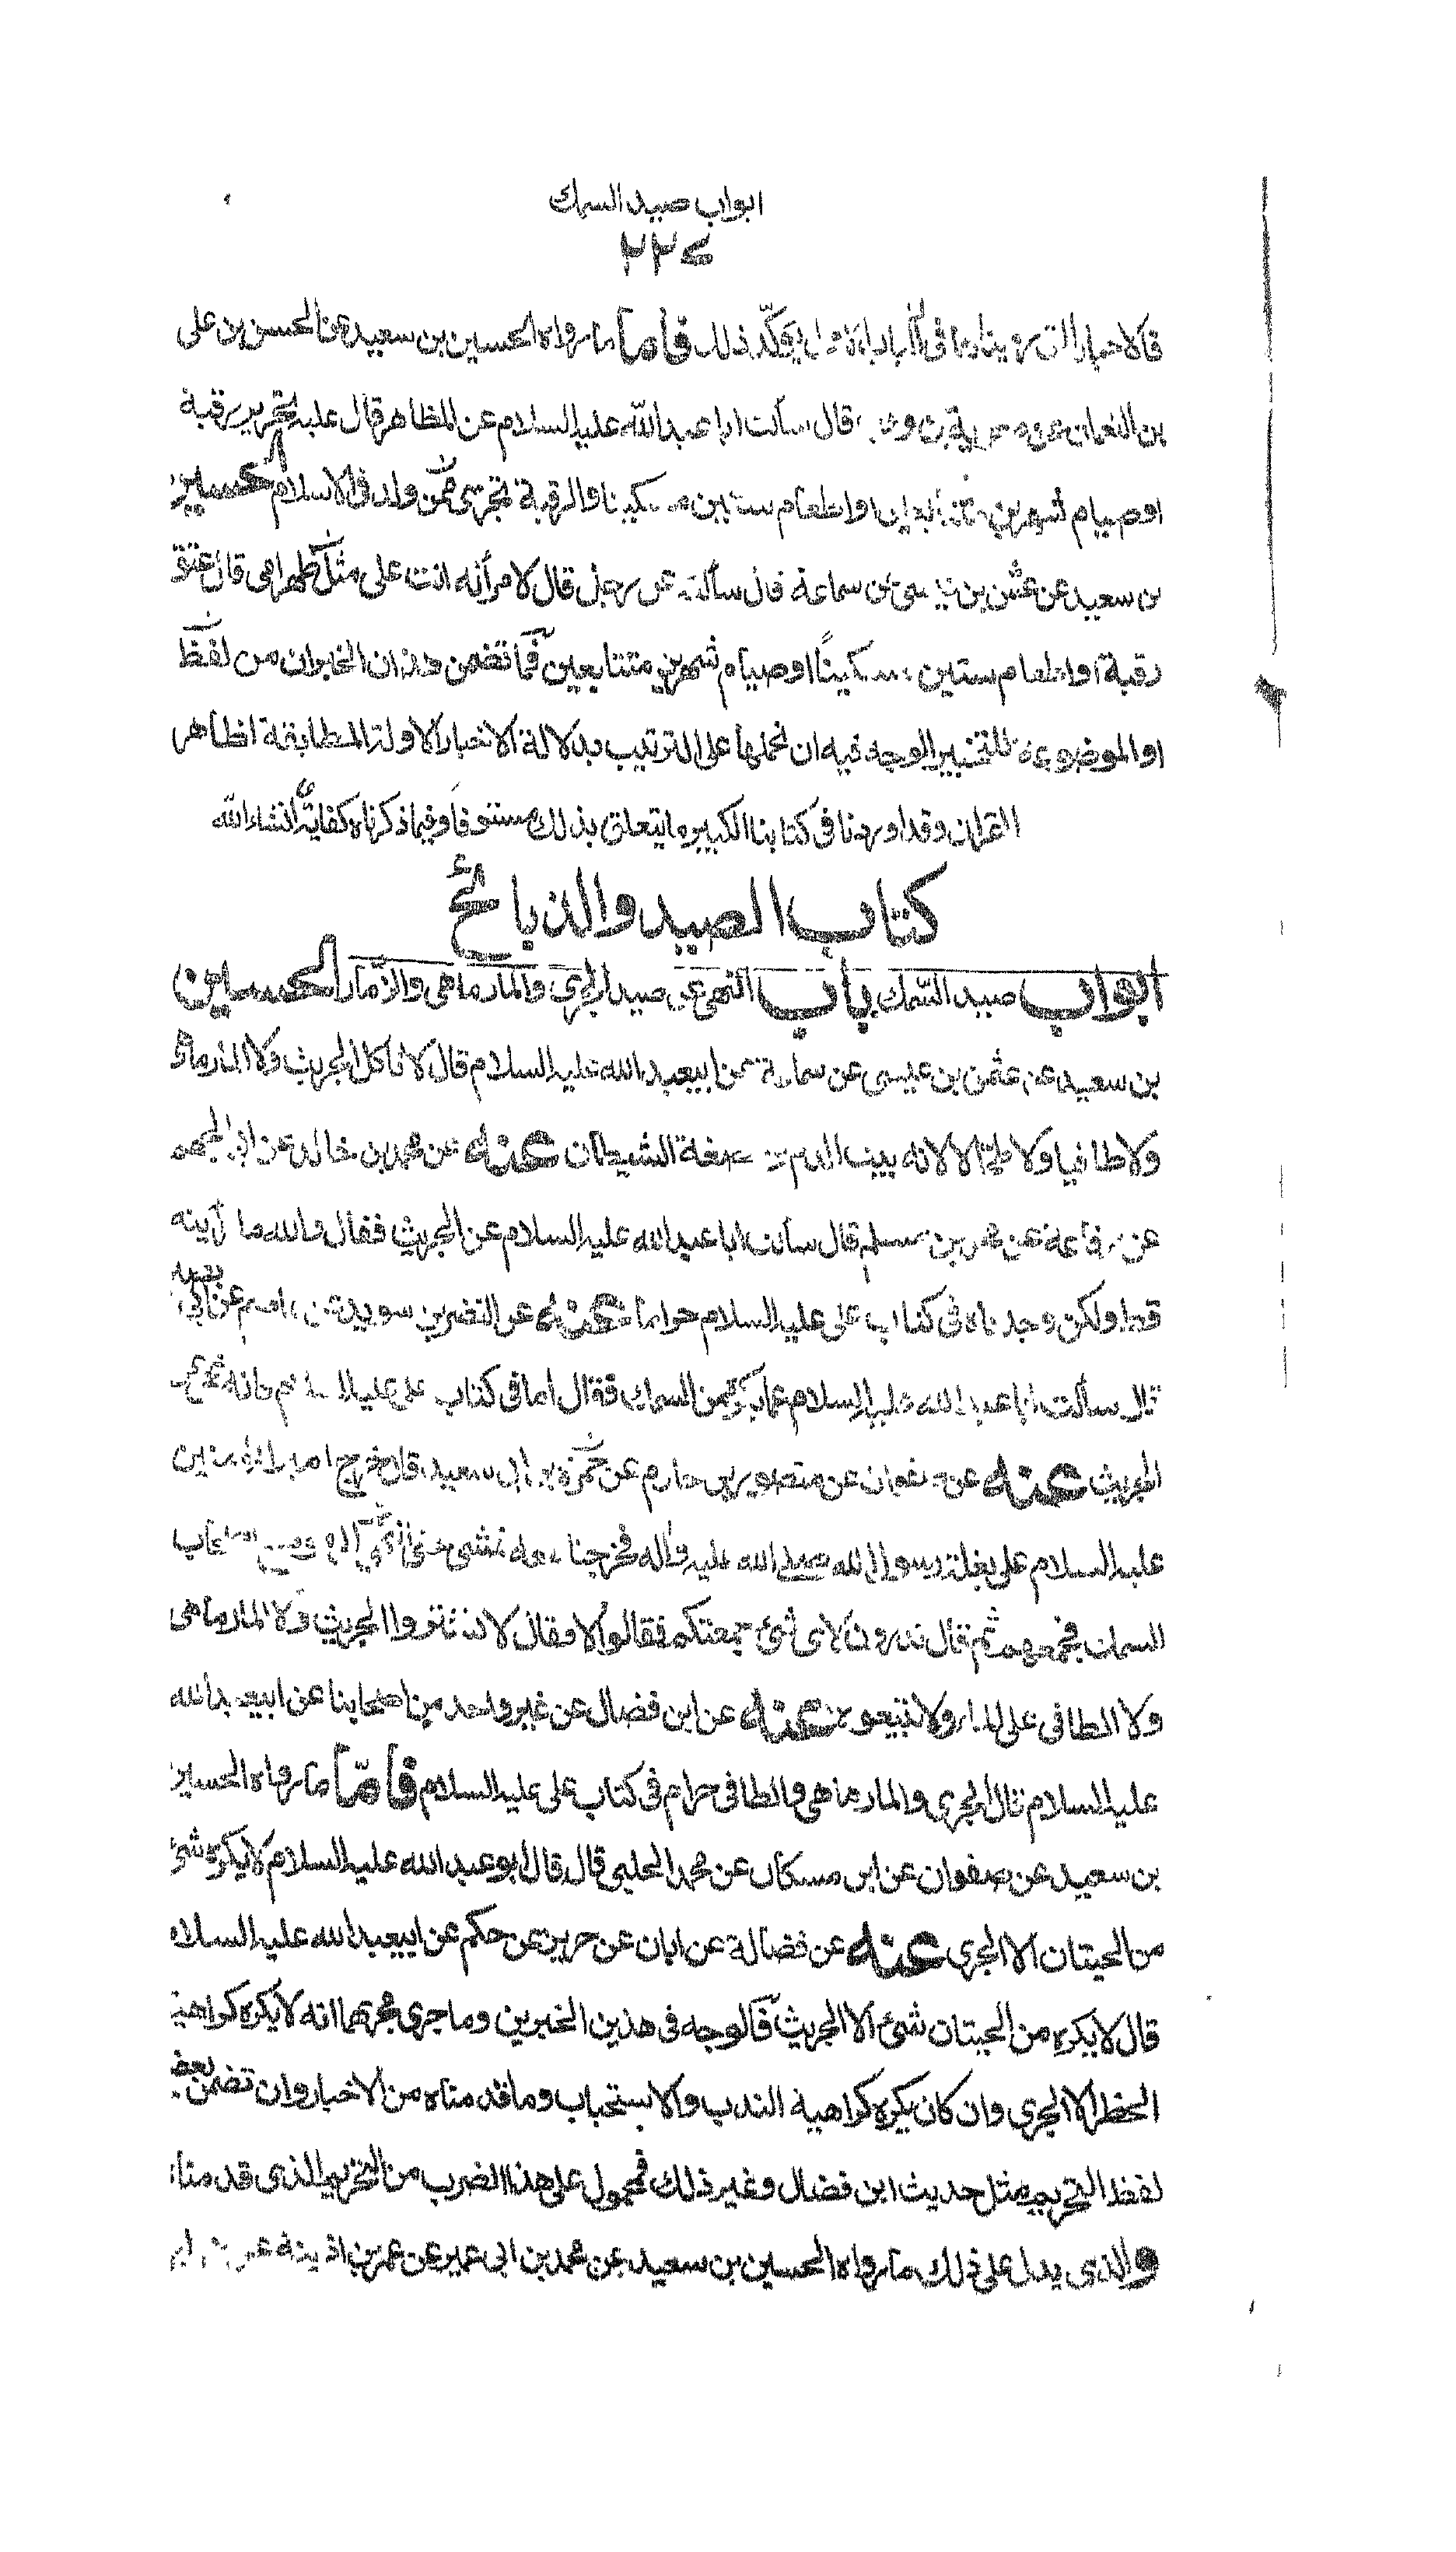 ابواب صيد السمك
٢٢٤
فالاخبار التى في الباب الاول يؤكد ذلك فأما ما رواه الحسين بن سعيد عن الحسن بن على
بن النعمان عن معوية بن وهب قال سألت ابا عبد الله عليه السلام عن المظاهر قال عليه تحرير رقبة
او صيام شهرين متتابعين او اطعام ستين مسكينا والرقبة تجزى ممن ولد فى الاسلام الحسين
بن سعيد عن عثمن بن عيسى عن سماعة قال سألته عن رجل قال لامرأته انت على مثل ظهر امى قال عتق
رقبة او اطعام ستين مسكينًا او صيام شهرين متتابعين فما تضمن هذان الخبران من لفظ
او الموضوعة للتخيير الوجه فيه ان نحملها على الترتيب بدلالة الاخبار الاولة المطابقة لظاهر
القران وقد اوردنا فى كتابنا الكبير ما يتعلق بذلك مستوفا وفيما ذكرناه كفاية انشاء الله
كتاب الصيد والذبائح
ابواب صيد السمك باب النهى عن صيد الجرى والمارماهى والزمار الحسين
بن سعيد عن عثمن بن عيسى عن سماعة عن ابيعبد الله عليه السلام قال لا تأكل الجريث ولا المارماهى
ولا طافيا ولا طحالا لانه بيت الدم ومضغة الشيطان عنه عن محمد بن خالد عن ابى الجهم
عن رفاعة عن محمد بن مسلم قال سألت ابا عبد الله عليه السلام عن الجريث فقال والله ما رأيته
قط ولكن وجدناه فى كتاب على عليه السلام حراما عنه عن النضر بن سويد عن عاصم عن ابى بصير
قال سألت ابا عبد الله عليه السلام عما يكره من السمك فقال أما فى كتاب على عليه السلام فانه نهى عن
الجريث عنه عن صفوان عن منصور بن حازم عن حمزة بن ابى سعيد قال خرج امير المؤمنين
عليه السلام على بغلة رسول الله صلى الله عليه وآله فخرجنا معه نمشى حتى انتهى الى موضع اصحاب
السمك فجمعهم ثم قال تدرون لاى شئ جمعتكم فقالوا لا فقال لا تشتروا الجريث ولا المارماهى
ولا الطافى على الماء ولا تبيعوه عنه عن ابن فضال عن غير واحد من اصحابنا عن ابيعبد الله
عليه السلام قال الجرى والمارماهى والطافى حرام فى كتاب على عليه السلام فأمّا ما رواه الحسين
بن سعيد عن صفوان عن ابن مسكان عن محمد الحلبى قال قال ابو عبد الله عليه السلام لا يكره شئ
من الحيتان الا الجرى عنه عن فضالة عن ابان عن حريز عن حكم عن ابيعبد الله عليه السلام
قال لا يكره من الحيتان شئ الا الجريث فالوجه فى هذين الخبرين وما جرى مجراهما انه لا يكره كراهية
الحظر الا الجرى وان كان يكره كراهية الندب والاستحباب وما قدمناه من الاخبار وان تضمن بعضه
لفظ التحريم مثل حديث ابن فضال وغير ذلك فمحمول على هذا الضرب من التحريم الذى قدمناه
والذى يدل على ذلك ما رواه الحسين بن سعيد عن محمد بن ابى عمير عن عمر بن اذينة عن